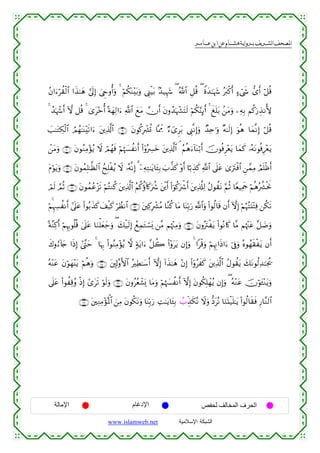 المصحف الشريف برواية هشام عن ابن عامر
قُلْ أَيُّ شَيْءٍ أَكْبَرُ شَهَادَةً قُلِ اللَّهُ شَهِيدٌ بَيْنِي وَبَيْنَكُمْ وَأُوحِيَ إِلَيَّ هَذَا الْقُرْءَانُ
لِأُنْذِرَكُمْ بِهِ وَمَنْ بَلَغَ أَئِنَّكُمْ لَتَشْهَدُونَ أَنَّ مَعَ اللَّهِ ءَالِهَةً أُخْرَى قُلْ لَا أَشْهَدُ
قُلْ إِنَّمَا هُوَ إِلَهٌ وَاحِدٌ وَإِنَّنِي بَرِيءٌ مِمَّا تُشْرِكُونَ الَّذِينَ ءَاتَيْنَاهُمُ الْكِتَابَ
يَعْرِفُونَهُ كَمَا يَعْرِفُونَ أَبْنَاءَهُمُ الَّذِينَ خَسِرُوا أَنْفُسَهُمْ فَهُمْ لَا يُؤْمِنُونَ وَمَنْ
أَظْلَمُ مِمَّنِ افْتَرَى عَلَى اللَّهِ كَذِبًا أَوْ كَذَّبَ بِآيَاتِهِ إِنَّهُ لَا يُفْلِحُ الظَّالِمُونَ وَيَوْمَ
نَحْشُرُهُمْ جَمِيعًا ثُمَّ نَقُولُ لِلَّذِينَ أَشْرَكُوا أَيْنَ شُرَكَاؤُكُمُ الَّذِينَ كُنْتُمْ تَزْعُمُونَ ثُمَّ لَمْ
تَكُنْ فِتْنَتُهُمْ إِلَّا أَنْ قَالُوا وَاللَّهِ رَبِّنَا مَا كُنَّا مُشْرِكِينَ انْظُرْ كَيْفَ كَذَبُوا عَلَى أَنْفُسِهِمْ
وَضَلَّ عَنْهُمْ مَا كَانُوا يَفْتَرُونَ وَمِنْهُمْ مَنْ يَسْتَمِعُ إِلَيْكَ وَجَعَلْنَا عَلَى قُلُوبِهِمْ أَكِنَّةً
أَنْ يَفْقَهُوهُ وَفِي ءَاذَانِهِمْ وَقْرًا وَإِنْ يَرَوْا كُلَّ ءَايَةٍ لَا يُؤْمِنُوا بِهَا حَتَّى إِذَا جَاءُوكَ
يُجَادِلُونَكَ يَقُولُ الَّذِينَ كَفَرُوا إِنْ هَذَا إِلَّا أَسَاطِيرُ الْأَوَّلِينَ وَهُمْ يَنْهَوْنَ عَنْهُ
وَيَنْأَوْنَ عَنْهُ وَإِنْ يُهْلِكُونَ إِلَّا أَنْفُسَهُمْ وَمَا يَشْعُرُونَ وَلَوْ تَرَى إِذْ وُقِفُوا عَلَى
النَّارِ فَقَالُوا يَا لَيْتَنَا نُرَدُّ وَلَا نُكَذِّبُ بِآيَاتِ رَبِّنَا وَنَكُونَ مِنَ الْمُؤْمِنِينَ
الحرف المخالف لحفص الإدغام الإمالة
الشبكة الإسلامية www.islamweb.net